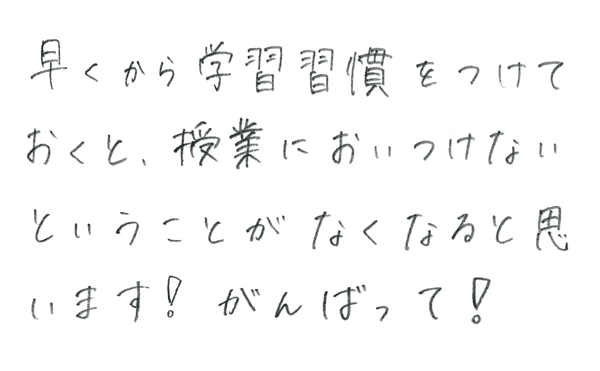 早くから学習習慣をつけて
おくと、授業においつけない
ということがなくなると思
います!がんばって!